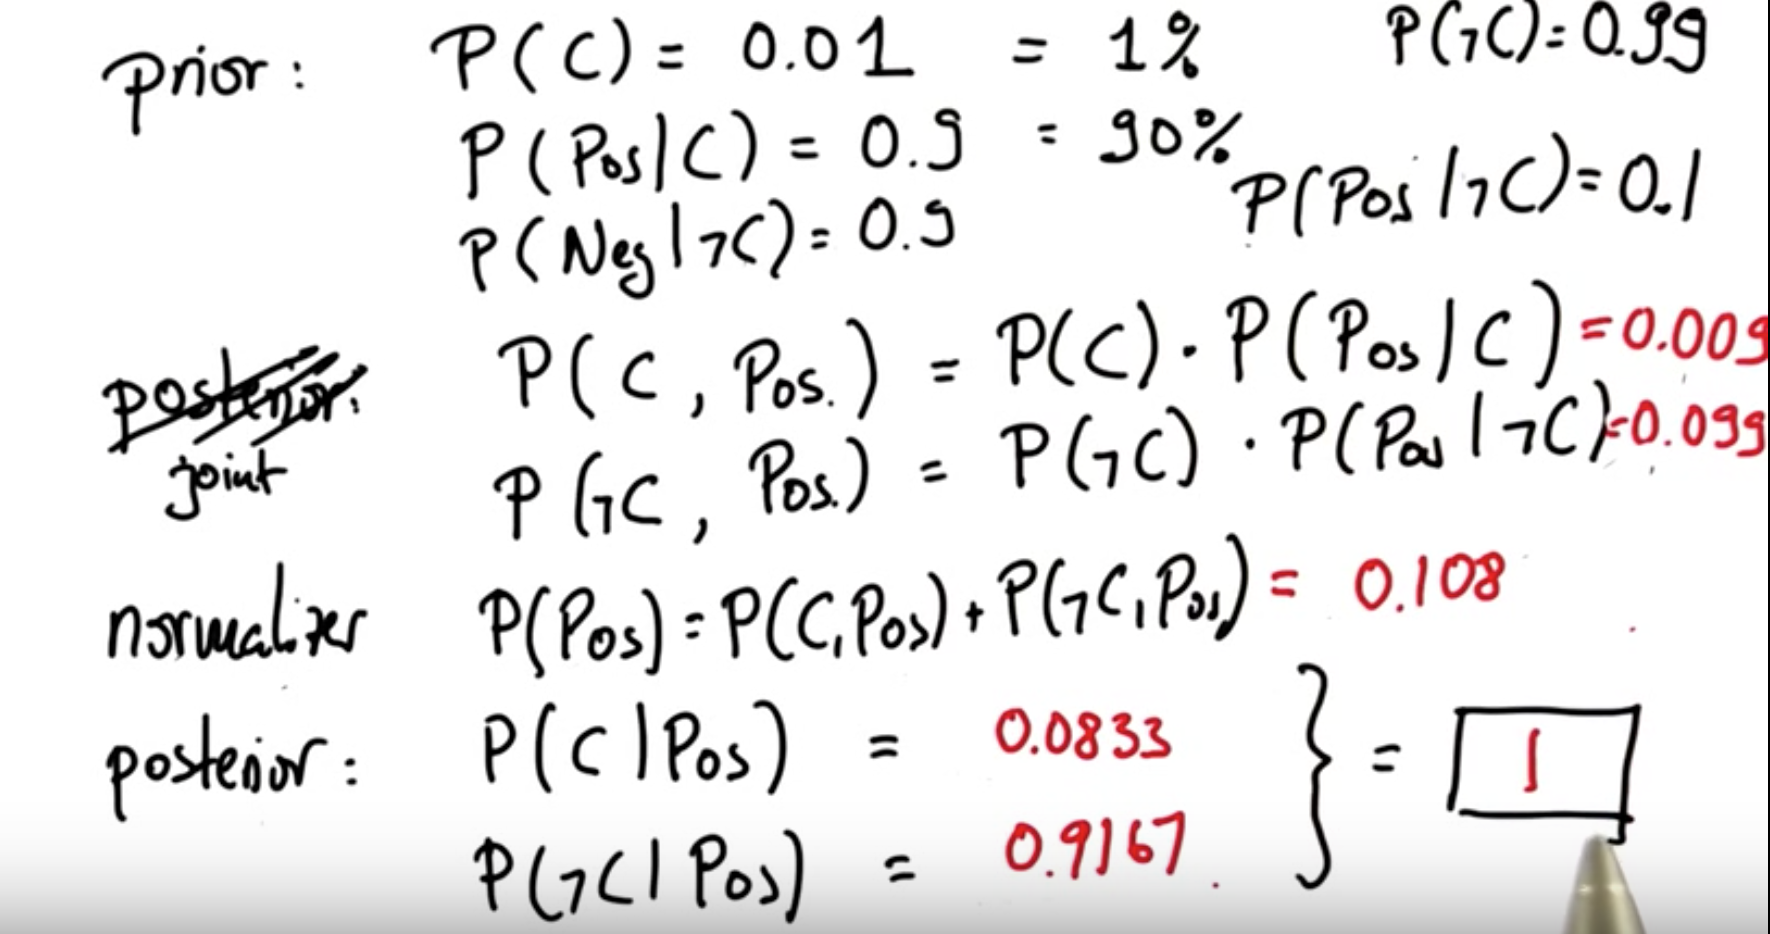 prior: P(C) = 0.01 = 1% P(¬C)=0.99
P(Pos|C) = 0.9 = 90%
P(Neg|¬C)=0.9 P(Pos|¬C)=0.1
posterior: P(C, Pos.) = P(C)·P(Pos|C)=0.009
joint P(¬C, Pos.) = P(¬C)·P(Pos|¬C)=0.099
normalizer P(Pos)=P(C,Pos)+P(¬C,Pos)= 0.108
posterior: P(C|Pos) = 0.0833
} = 1
P(¬C|Pos) = 0.9167.